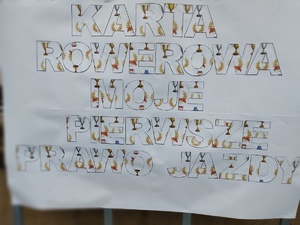 KARTA
ROWEROWA
MOJE
PIERWSZE
PRAWO JAZDY